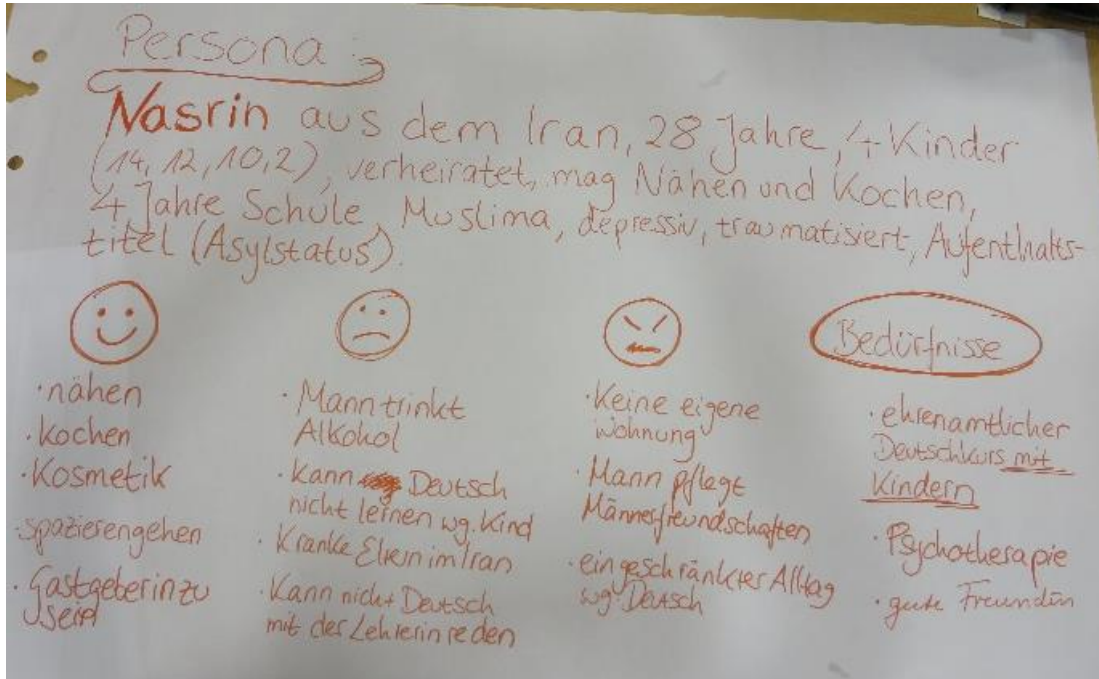 Persona
Nasrin aus dem Iran, 28 Jahre, 4 Kinder
(14, 12, 10, 2), verheiratet, mag Nähen und Kochen,
4 Jahre Schule, Muslima, depressiv, traumatisiert, Aufenthalts-
titel (Asylstatus).
· nähen
· kochen
· Kosmetik
· spazierengehen
· Gastgeberin zu
sein
· Mann trinkt
Alkohol
· kann Deutsch
nicht lernen wg. Kind
· Kranke Eltern im Iran
· Kann nicht Deutsch
mit der Lehrerin reden
· Keine eigene
Wohnung
· Mann pflegt
Männerfreundschaften
· eingeschränkter Alltag
wg. Deutsch
Bedürfnisse
· ehrenamtlicher
Deutschkurs mit
Kindern
· Psychotherapie
· gute Freundin